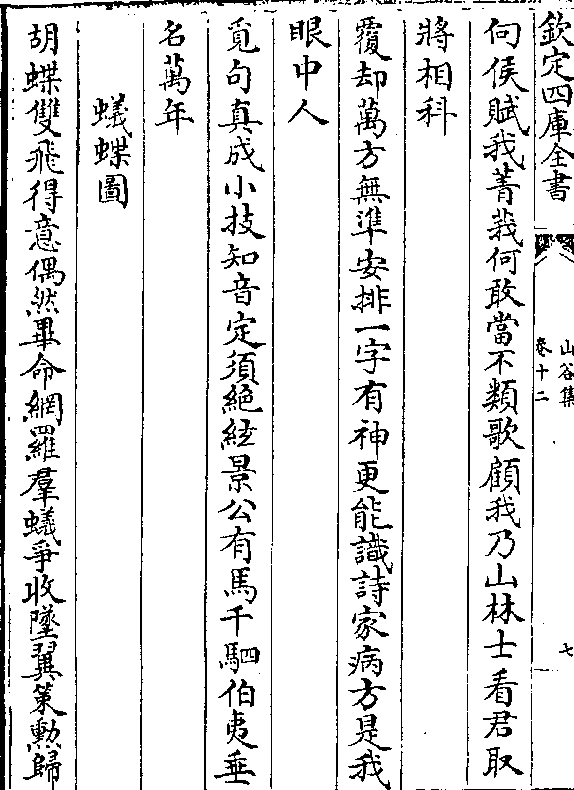 欽定四庫全書
山谷集
卷十二
七
向侯賦我菁莪何敢當不類歌顧我乃山林士看君取
將相科
覆却萬方無準安排一字有神更能識詩家病方是我
眼中人
覓句真成小技知音定須絶絃景公有馬千駟伯夷垂
名萬年
蟻蝶圖
胡蝶雙飛得意偶然畢命網羅羣蟻爭收墜翼策勲歸